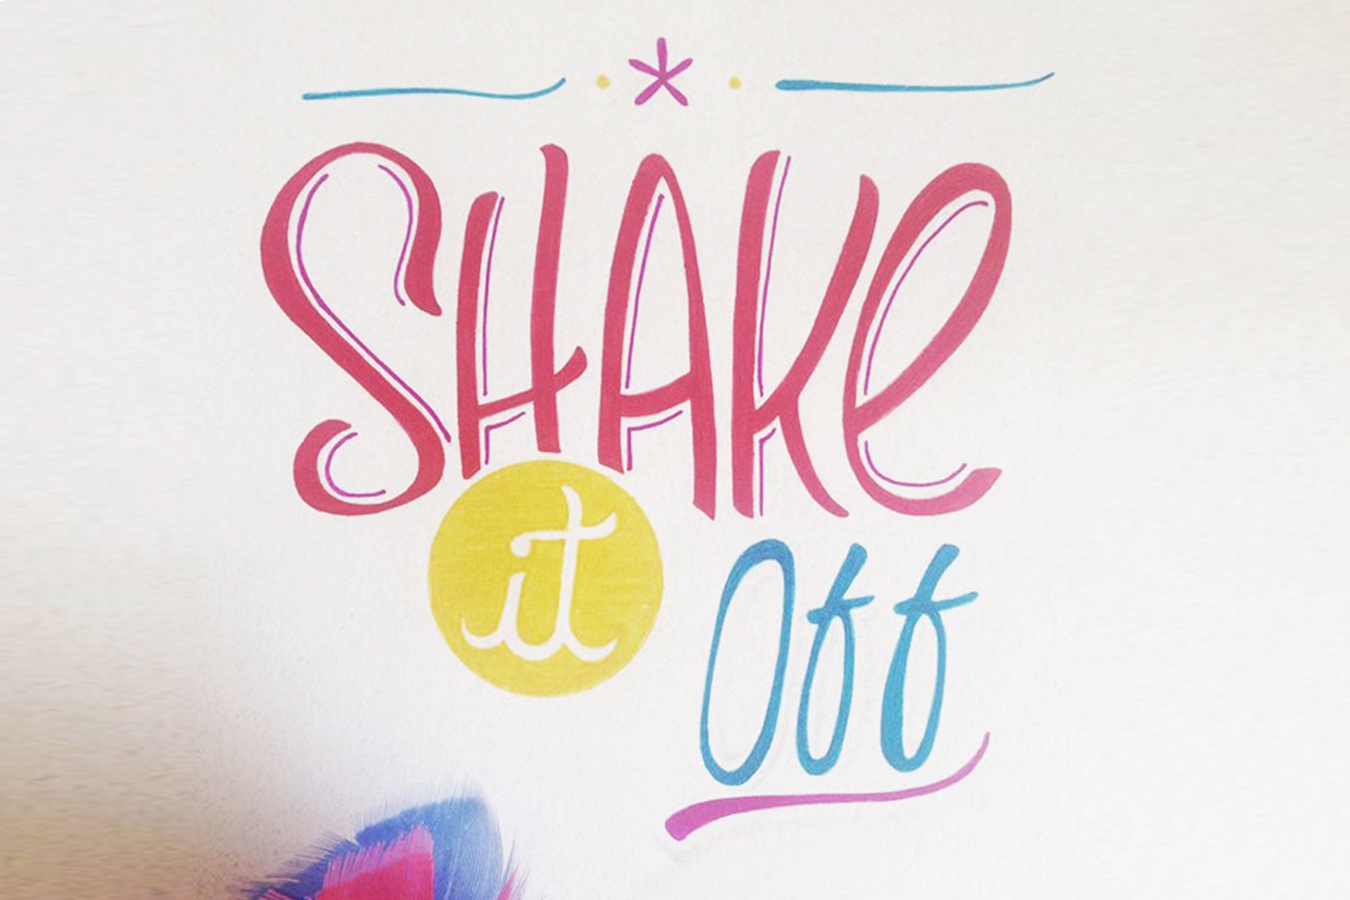 SHAKe
it
Off